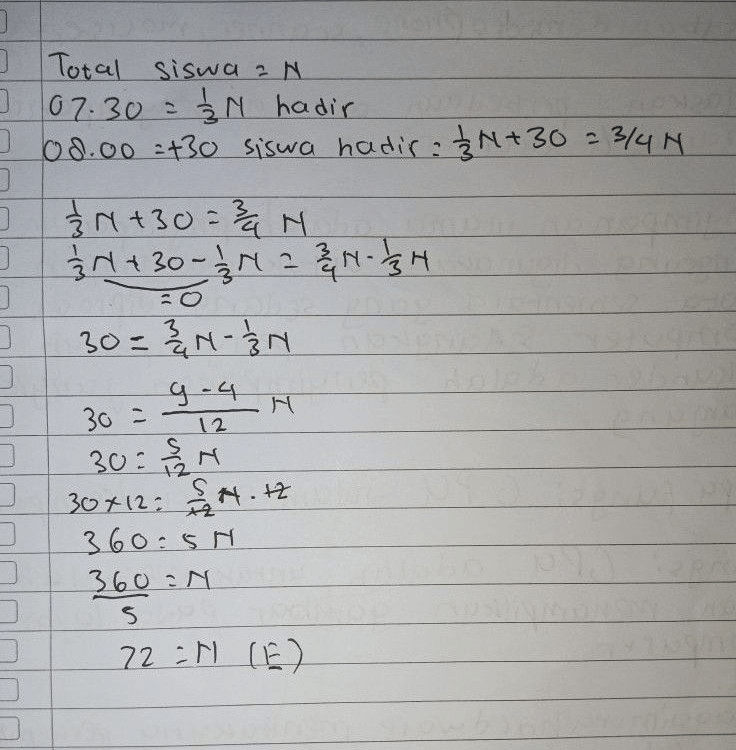 Total siswa = N
07.30 = 1/3 N hadir
08.00 = +30 siswa hadir = 1/3 N + 30 = 3/4 N
1/3 N + 30 = 3/4 N
1/3 N + 30 - 1/3 N = 3/4 N - 1/3 N
= 0
30 = 3/4 N - 1/3 N
30 = 9 - 4 / 12 N
30 = 5/12 N
30 x 12 = 5/12 N . 12
360 = 5 N
360/5 = N
72 = N (E)